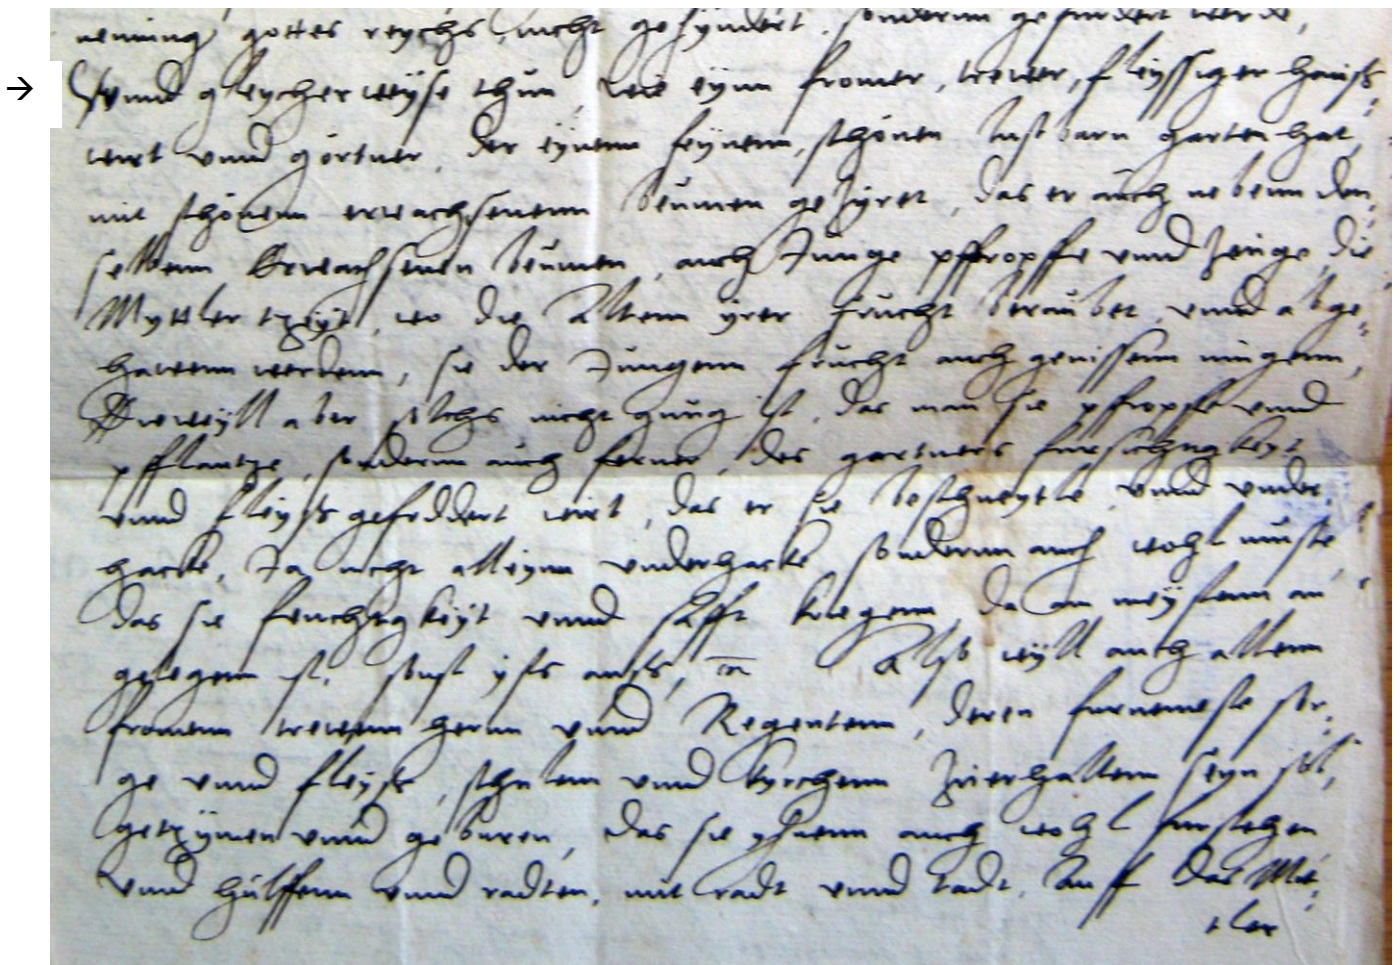 nennung gottes reychs, nicht gehyndert, sondernn gefurdert werde,
Vnnd gleycherweyse thun, wie eynn fromer, trewer, fleyssiger hauss
wirt vnnd gortner, der eynenn feynenn, schönen lustbarn garten hat,
mit schönenn erwachssenenn beumen gezyret, das er auch nebenn den
selbenn Erwachssenen beumen, auch Junge pffropffe vnnd zeuge, die
Myttler tzeyt, wo die Altenn yrer frucht beraubet, vnnd abge
hawenn werdenn, sie der Jungenn frucht auch genissenn mugenn,
Dieweyll aber solchs nicht gnug ist, das man sie pfropffe vnnd
pfflantze, sondernn auch ferner, des gartners fursichtigkeyt
vnnd fleyss gefoddert wirt, das er sie beschneytte, vnnd vnder
hacke, Ja nicht alleynn vnderhacke, sondernn auch wohl muste,
das sie feuchtigkeyt vnnd safft kriegenn, da am meystenn an
gelegenn ist, sonst ists auss, Also wyll auch allenn
fromenn trewenn hernn vnnd Regentenn, deren furnemeste sor
ge vnnd fleyss, schulenn vnnd kyrchenn zuerhaltenn seyn sol,
getzymen vnnd geburen, das sie yhnenn auch wohl furstehen
vnnd hülffenn vnnd radten, mit radt vnnd tadt, Auff das Mit
tler